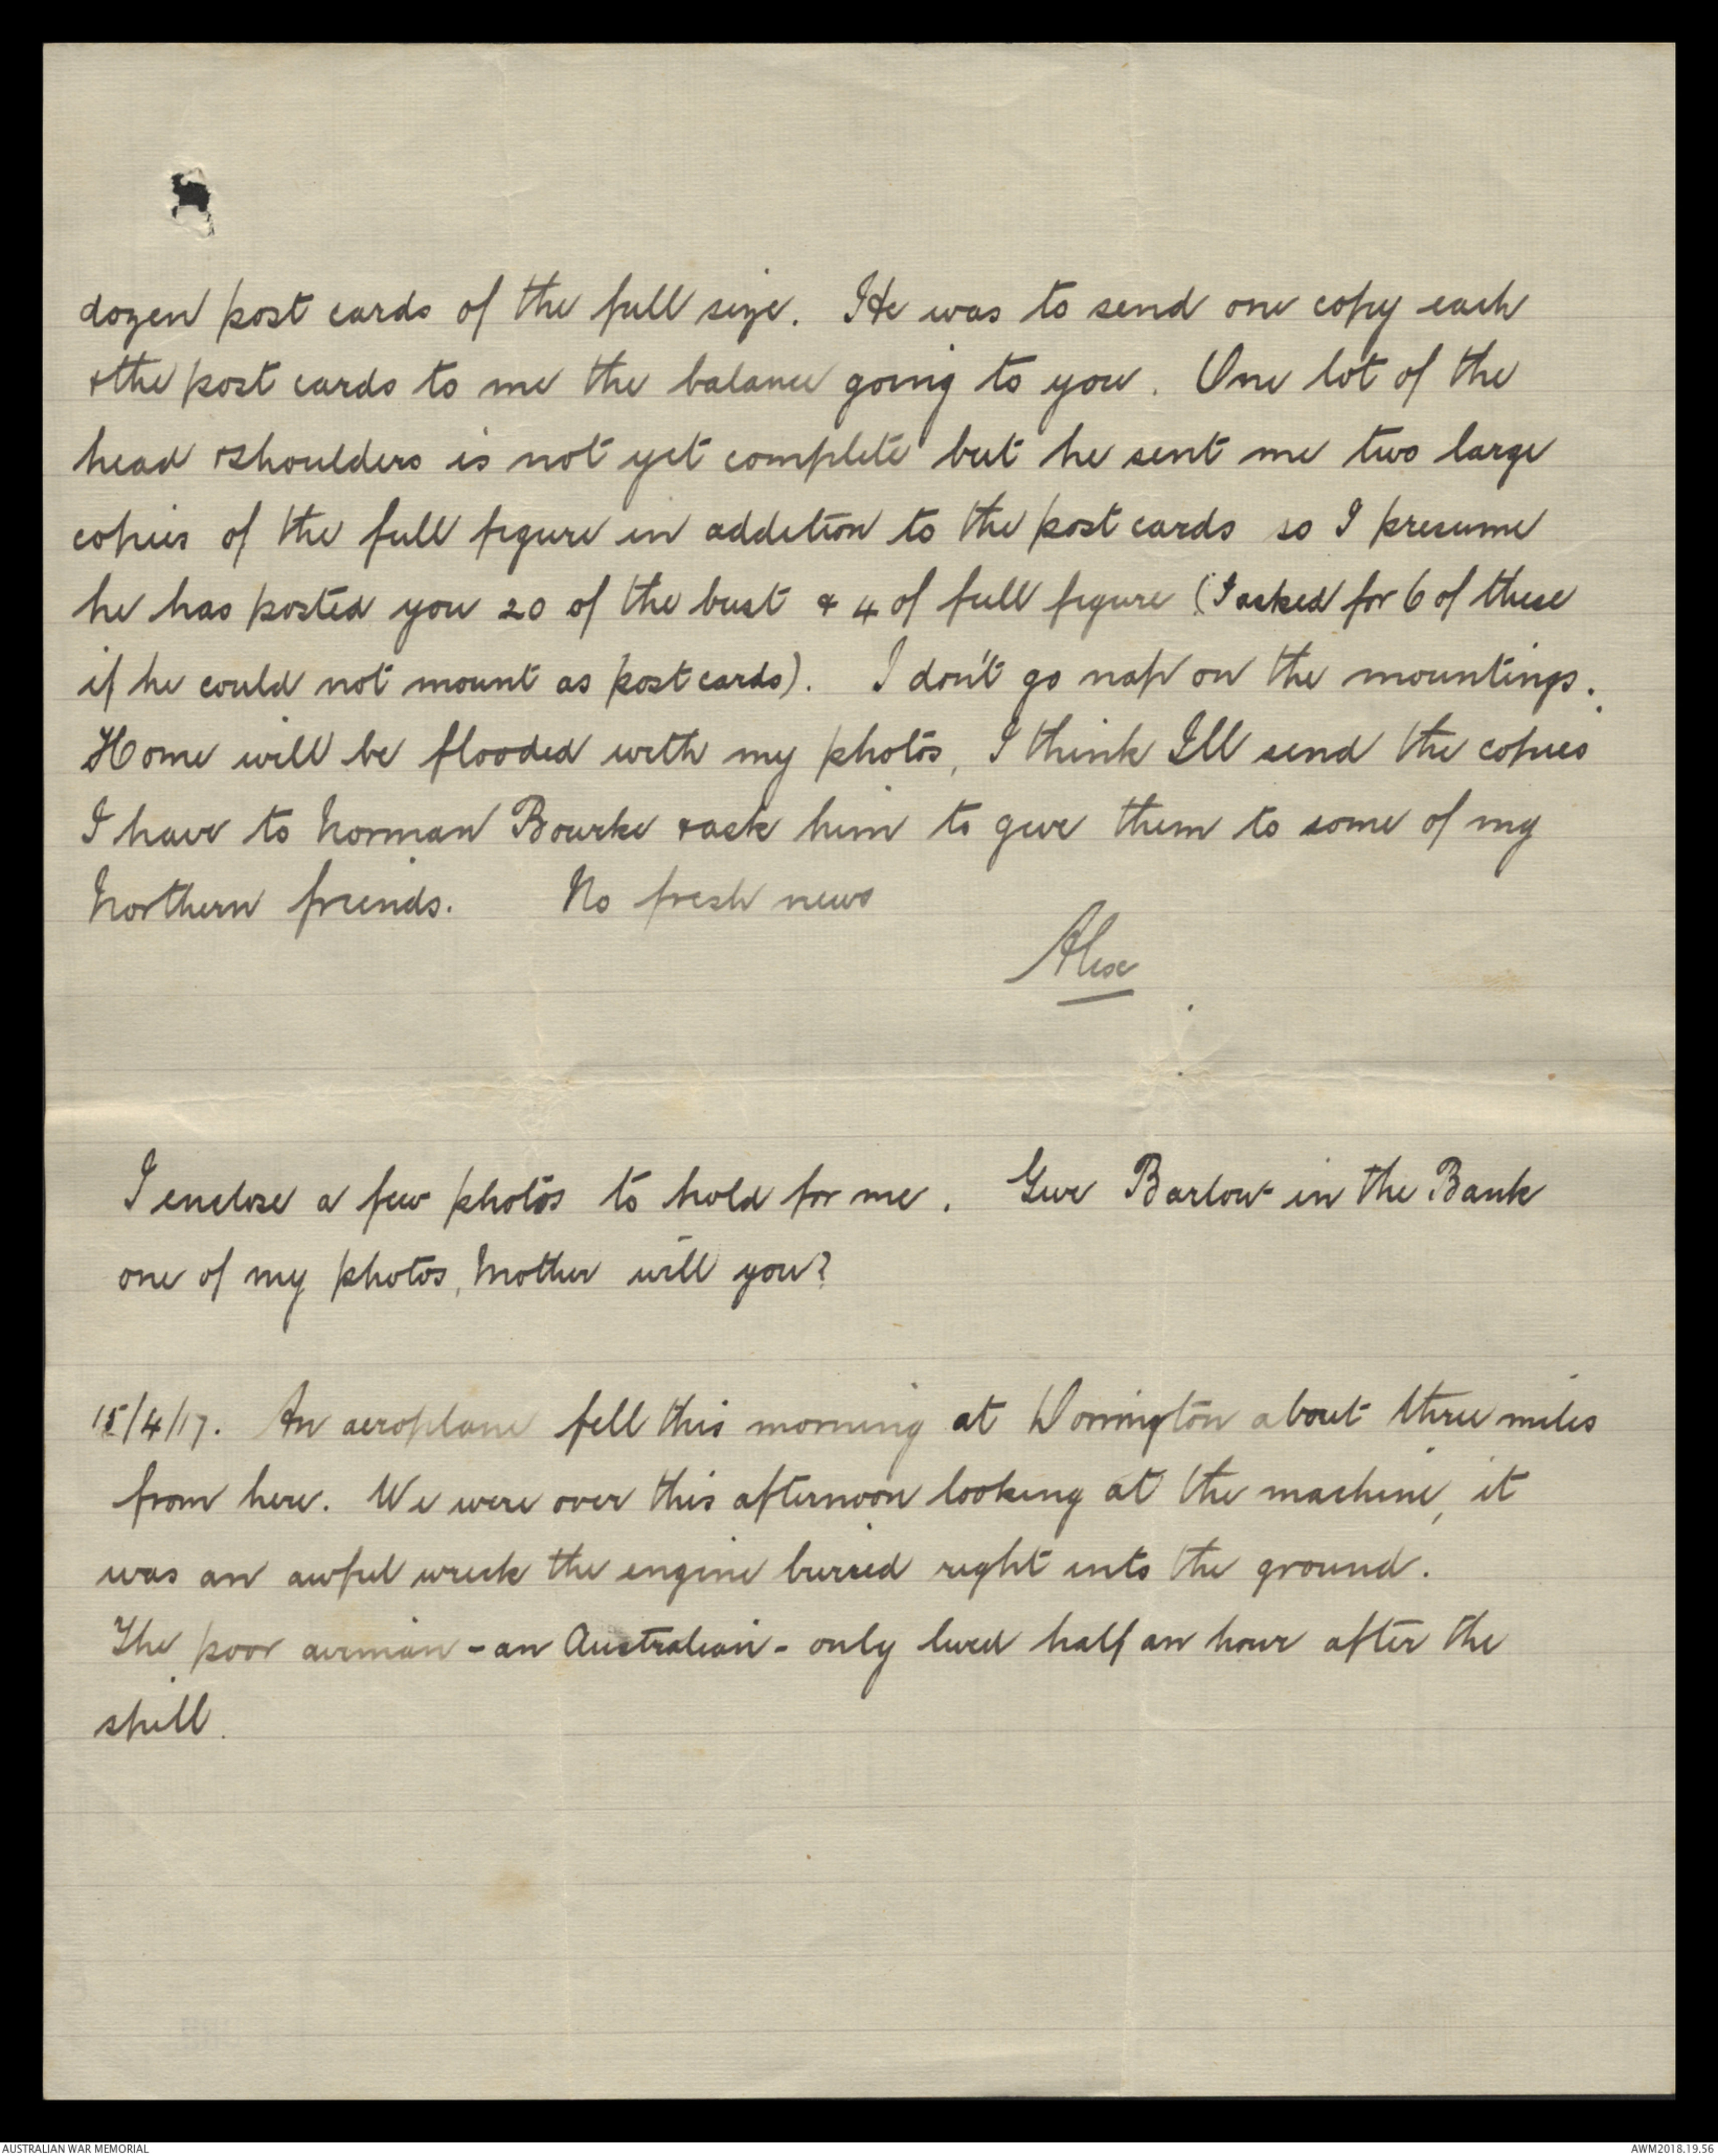 dozen post cards of the full size. He was to send one copy each
& the post cards to me the balance going to you. One lot of the
head & shoulders is not yet complete but he sent me two large
copies of the full figure in addition to the post cards so I presume
he has posted you 20 of the bust & 4 of full figure (I asked for 6 of these
if he could not mount as post cards). I don't go nap on the mountings.
Home will be flooded with my photos, I think I'll send the copies
I have to Norman Bourke & ask him to give them to some of my
Northern friends. No fresh news
Alex
I enclose a few photos to hold for me. Give Barlow in the Bank
one of my photos, Mother will you?
15/4/17. An aeroplane fell this morning at Dorrington about three miles
from here. We were over this afternoon looking at the machine, it
was an awful wreck the engine burried right into the ground.
The poor airman - an Australian - only lived half an hour after the
spill.
AUSTRALIAN WAR MEMORIAL
AWM2018.19.56